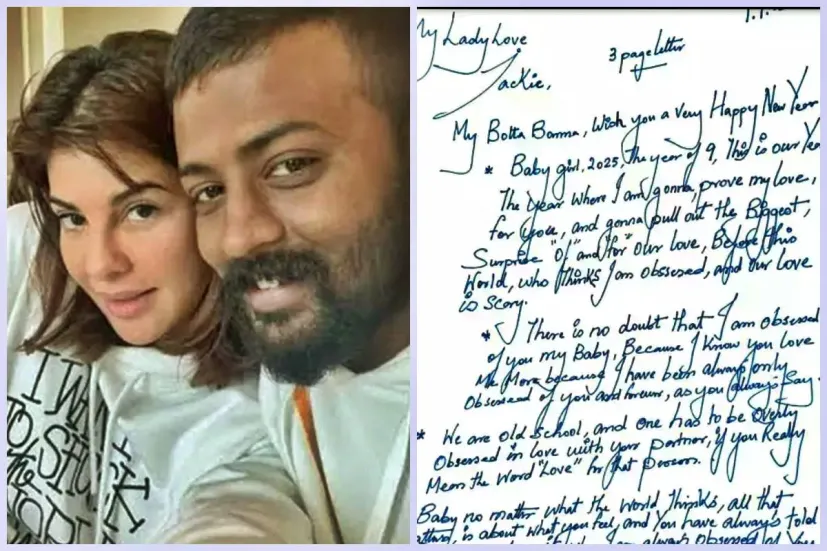 I WA
TO SH
the
WORL
My Lady Love
3 page letter
Jackie,
My Botta Bomma, Wish you a Very Happy New Year
* Baby girl, 2025, The year of 9, This is our Yea
The Year where I am gonna, prove my love,
for you, and gonna pull out the Biggest,
Surprise "Of" and "for" our love, Before this
World, who thinks I am obssesed, and our love
is scary.
* There is no doubt that I am obsessed
of you my Baby, Because I know you love
Me More because I have been always only
Obsessed of you and forever, as you always Say.
* We are old School, and one has to be overly
Obsessed in love with your partner, if you Really
Mean the Word "Love" for that person.
Baby no matter what the World thinks, all that
is about what you feel, and You have always told
always obsessed of You